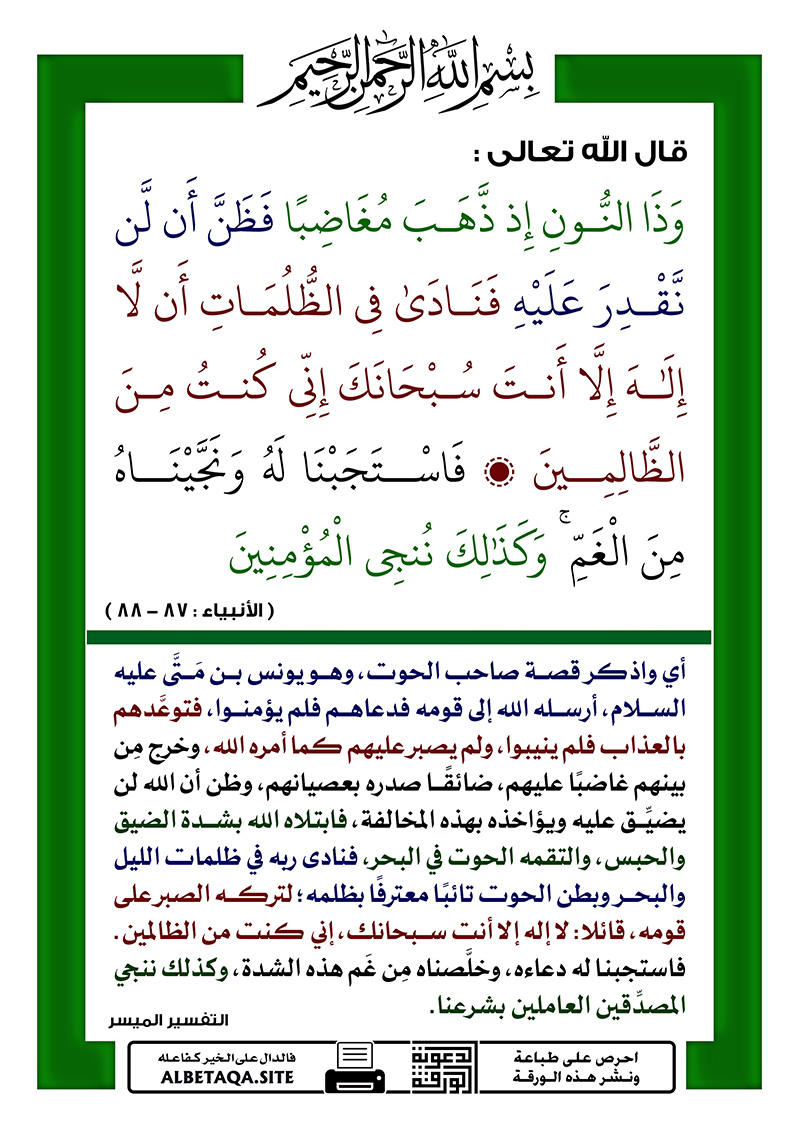 بِسْمِ اللَّهِ الرَّحْمَنِ الرَّحِيمِ
قال الله تعالى :
وَذَا النُّونِ إِذ ذَّهَبَ مُغَاضِبًا فَظَنَّ أَن لَّن
نَّقْدِرَ عَلَيْهِ فَنَادَىٰ فِي الظُّلُمَاتِ أَن لَّا
إِلَٰهَ إِلَّا أَنتَ سُبْحَانَكَ إِنِّي كُنتُ مِنَ
الظَّالِمِينَ ۞ فَاسْتَجَبْنَا لَهُ وَنَجَّيْنَاهُ
مِنَ الْغَمِّ ۚ وَكَذَٰلِكَ نُنجِي الْمُؤْمِنِينَ
( الأنبياء : ٨٧ - ٨٨ )
أي واذكر قصة صاحب الحوت، وهو يونس بن مَتَّى عليه
السلام، أرسله الله إلى قومه فدعاهم فلم يؤمنوا، فتوعَّدهم
بالعذاب فلم ينيبوا، ولم يصبر عليهم كما أمره الله، وخرج مِن
بينهم غاضبًا عليهم، ضائقًا صدره بعصيانهم، وظن أن الله لن
يضيِّق عليه ويؤاخذه بهذه المخالفة، فابتلاه الله بشدة الضيق
والحبس، والتقمه الحوت في البحر، فنادى ربه في ظلمات الليل
والبحر وبطن الحوت تائبًا معترفًا بظلمه؛ لتركه الصبر على
قومه، قائلا: لا إله إلا أنت سبحانك، إني كنت من الظالمين.
فاستجبنا له دعاءه، وخلَّصناه مِن غَم هذه الشدة، وكذلك ننجي
المصدِّقين العاملين بشرعنا.
التفسير الميسر
احرص على طباعة
ونشر هذه الورقة
الورقة الدعوية
فالدال على الخير كفاعله
ALBETAQA.SITE